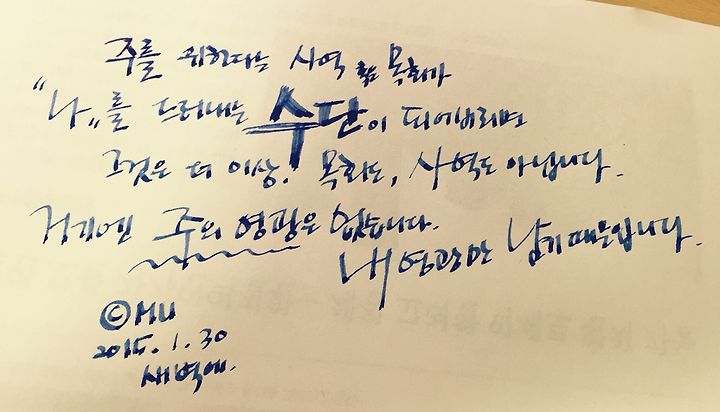 주를 위한다는 사역 혹은 목회가
"나"를 드러내는 수단이 되어버리면
그것은 더 이상. 목회도, 사역도 아닙니다.
거기엔 주의 영광은 없습니다.
내 영광만 남기 때문입니다.
©MU
2015.1.30
새벽에.